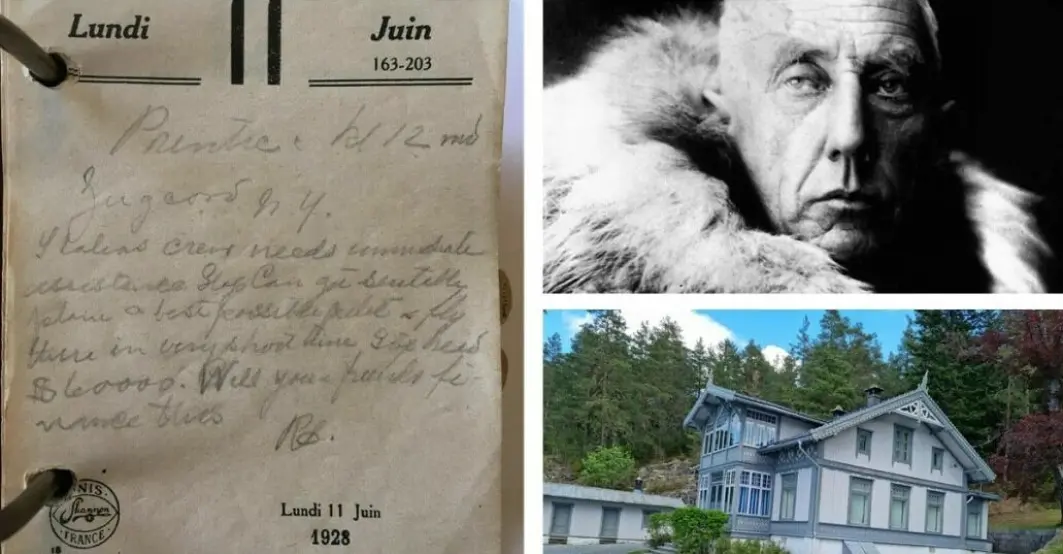 Lundi 11 Juin
163-203
kl 12
N.Y.
Italias crew needs immediate
assistance Stop Can get suitable
plane & best possible pilot & fly
there in very short time need
$ 60000. Will your friends fi-
nance this
RA.
NIS
Shannon
FRANCE
18
Lundi 11 Juin
1928